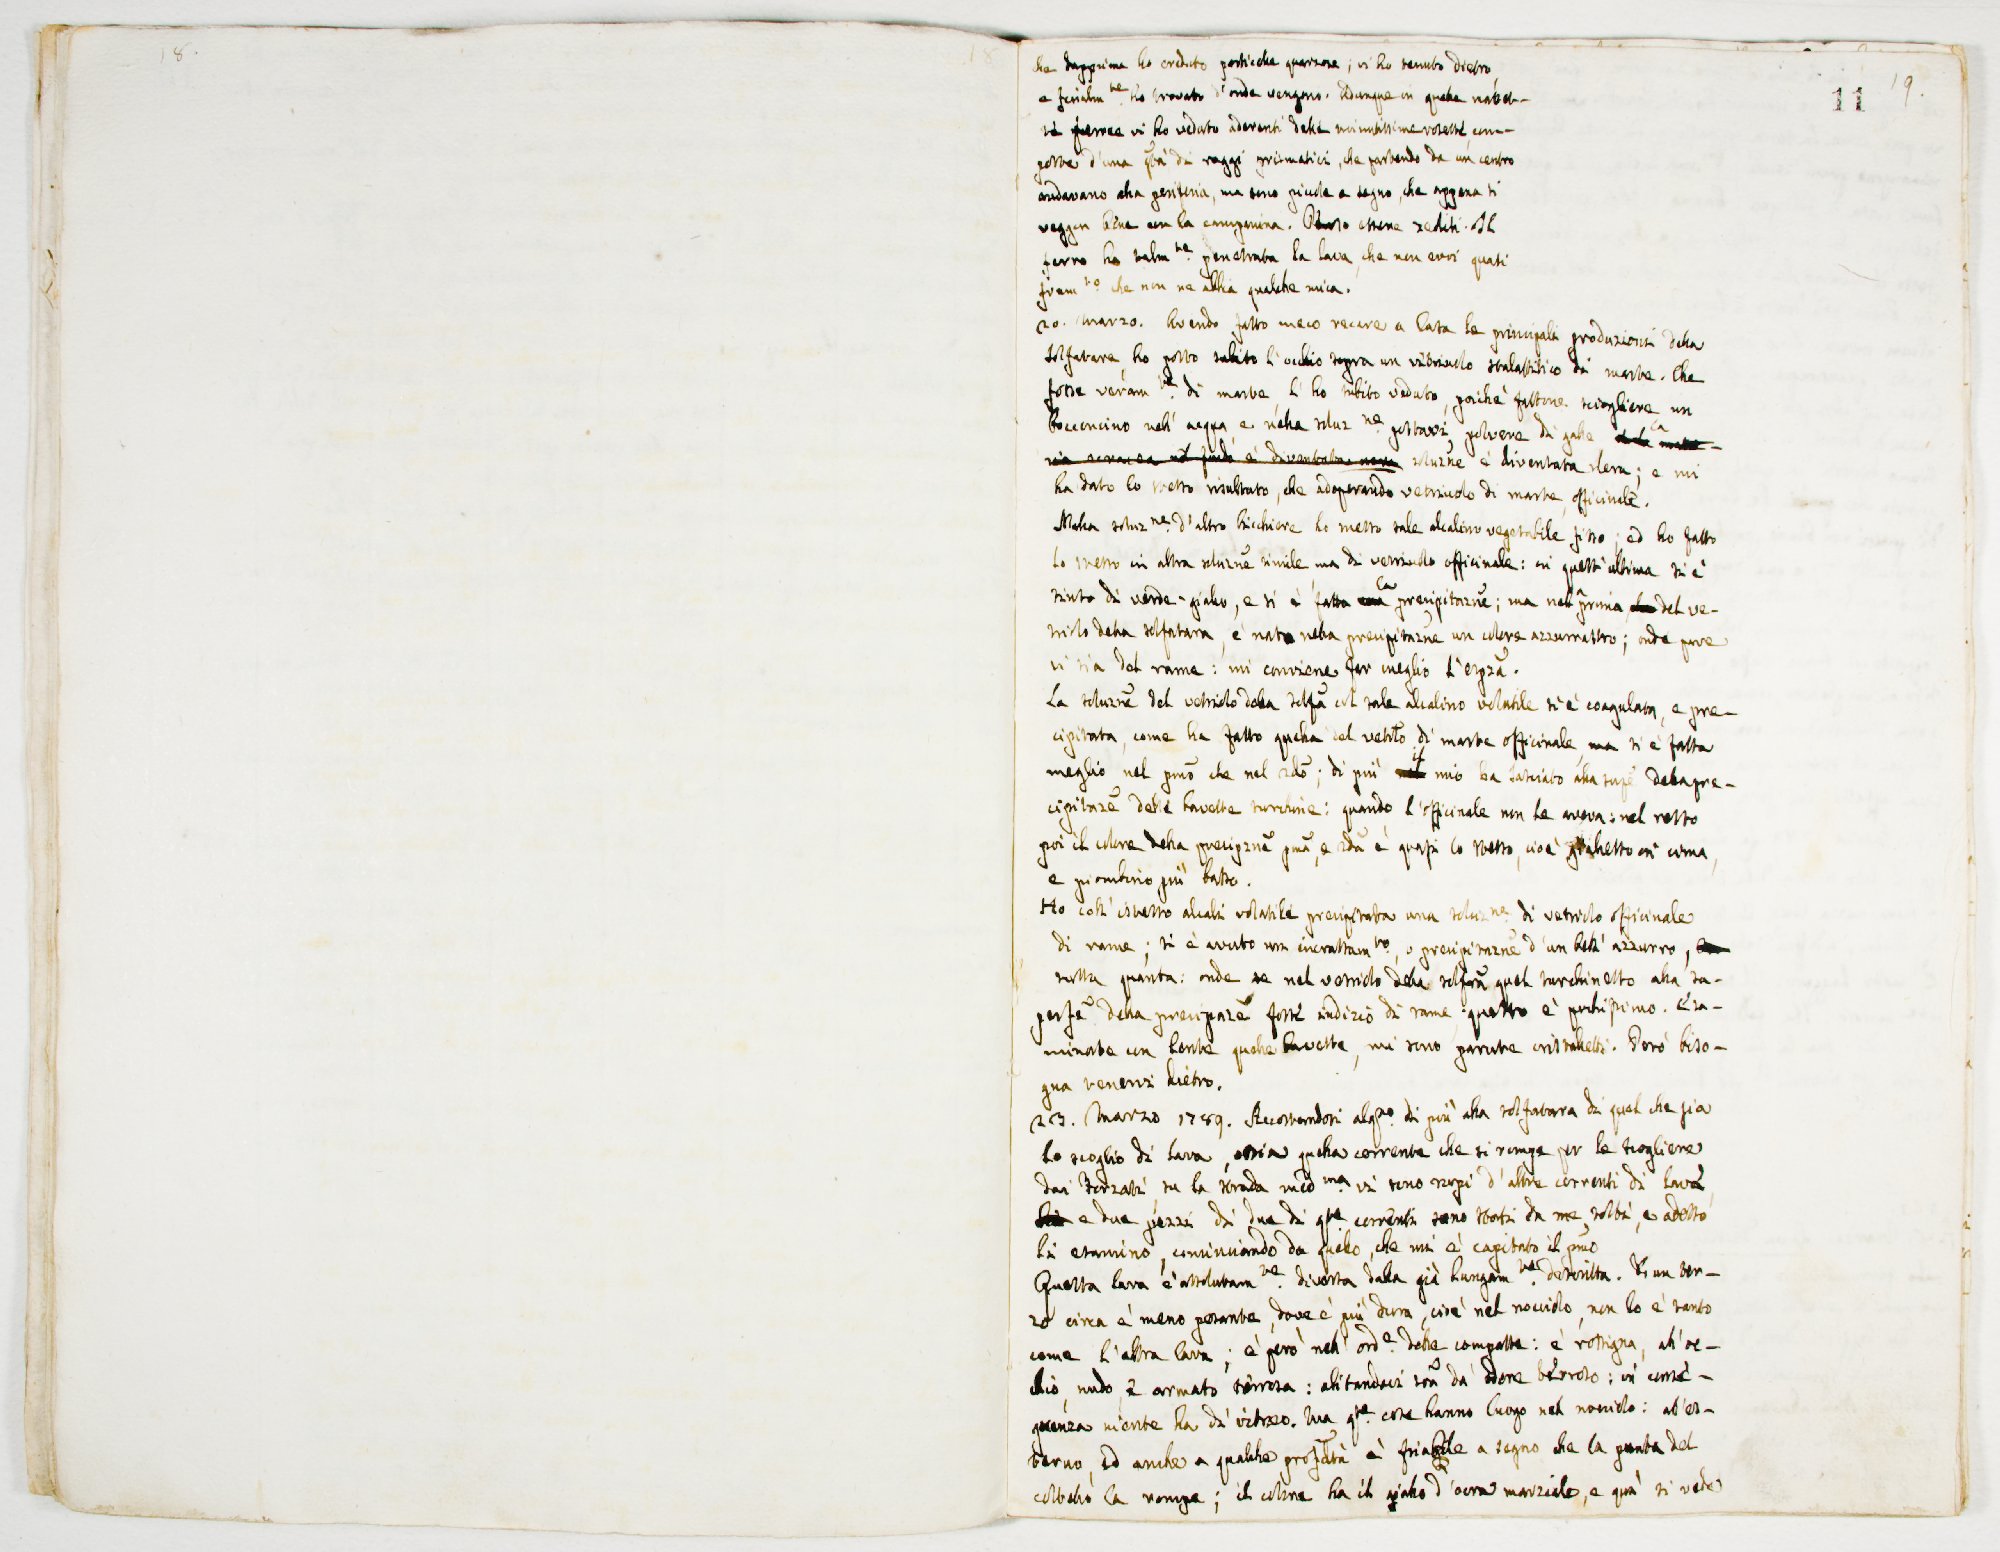 18.
18
19.
11
che dapprima ho creduto particelle quarzose; vi ho tenuto dietro,
e finalm.te ho trovato d'onde vengono. Adunque in quelle
vi ho veduto aderenti delle minutissime rosette com-
poste d'una q.tà di raggi prismatici, che partendo da un centro
andavano alla periferia, ma sono piccole a segno, che appena si
veggon bene con la campanina. Posso essere zeoliti. Il
ferro ha talm.te penetrata la lava, che non evvi quasi
fram.to che non ne abbia qualche mica.
20. Marzo. Avendo fatto meco recare a Casa le principali produzioni della
Solfatara, ho posto subito l'occhio sopra un vitriuolo stalattitico di marte. Che
fosse veram.te di marte, l'ho subito veduto, poiché fattone sciogliere un
bocconcino nell'acqua, e nella soluz.ne postavi polvere di galle la
soluzne è diventata nera; e mi
ha dato lo stesso risultato, che adoperando vetriuolo di marte officinale.
Nella soluz.ne d'altro bicchiere ho messo sale alcalino vegetabile fisso; ed ho fatto
lo stesso in altra soluzne simile ma di vetriuolo officinale: in quest'ultima si è
tinto di verde-giallo, e si è fatta la precipitazne; ma nel prima, del ve-
triolo della solfatara, è nato nella precipitazne un colore azzurrastro; onde pare
vi sia del rame: mi conviene far meglio l'espza.
La soluzne del vetriolo della solfa col sale alcalino volatile si è coagulata, e pre-
cipitata, come ha fatto quella del vetrlo di marte officinale, ma si è fatta
meglio nel pmo che nel 2do; di più il mio ha lasciato alla supe della pre-
cipitaze delle lavette turchine: quando l'officinale non le aveva: nel resto
poi il colore della precipzne pma, e 2da è quasi lo stesso, cioè gialletto in cima,
e piombino più basso.
Ho coll'istesso alcali volatile precipitata una soluz.ne di vetriolo officinale
di rame; si è avuto un incrostam.to, o precipitazne d'un bell'azzurro,
tutta quanta: onde se nel vetriolo della solfara quel turchinetto alla su-
perfe della precipaze fosse indizio di rame, questo è pochissimo. Esa-
minate con lente quelle lavette, mi sono parute cristalletti. Però biso-
gna tenervi dietro.
23. Marzo 1789. Accostandosi alq.to di più alla solfatara di quel che sia
lo scoglio di lava, ossia quella corrente che si rompe per le scogliere
dai forzati, su la strada med.ma vi sono rupi d'altre correnti di lava,
e due pezzi di due di q.te correnti sono stati da me tolti, e adesso
li esamino, cominciando da quello, che mi è capitato il pmo
Questa lava è assolutam.te diversa dalla già lungam.te descritta. D'un ter-
zo circa è meno pesante, dove è più dura, cioè nel nocciolo, non lo è tanto
come l'altra lava; è però nell'ord.e delle compatte: è rossigna, all'oc-
chio, nudo, e armato terrosa: alitandoci sora dà odore terroso: in conse-
guenza niente ha di vitreo. Ma q.te cose hanno luogo nel nocciolo: all'es-
terno, ed anche a qualche profdità è friabile a segno che la punta del
coltello la rompe; il colore ha il giallo d'ocra marziale, e quà si vede